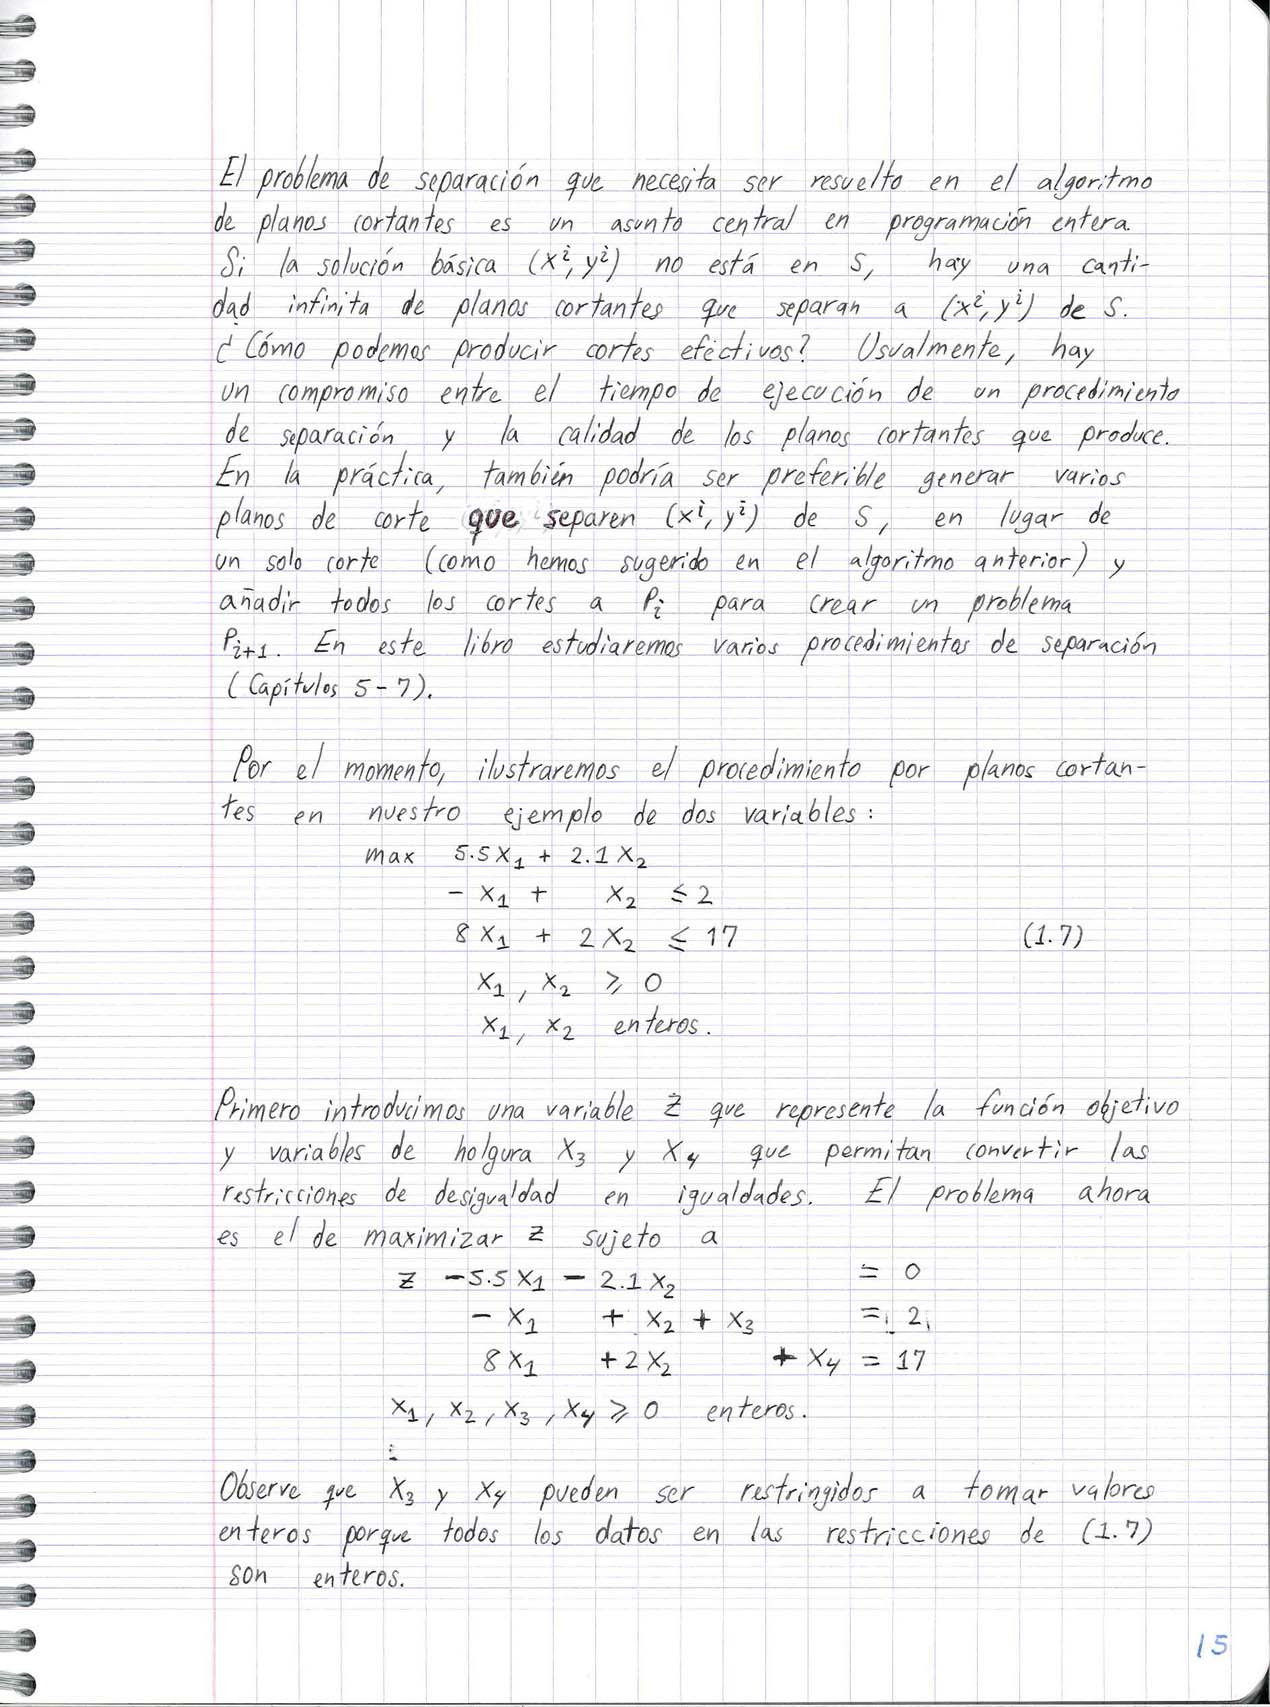 El problema de separación que necesita ser resuelto en el algoritmo
de planos cortantes es un asunto central en programación entera.
Si la solución básica (xⁱ, yⁱ) no está en S, hay una canti-
dad infinita de planos cortantes que separan a (xⁱ, yⁱ) de S.
¿Cómo podemos producir cortes efectivos? Usualmente, hay
un compromiso entre el tiempo de ejecución de un procedimiento
de separación y la calidad de los planos cortantes que produce.
En la práctica, también podría ser preferible generar varios
planos de corte que separen (xⁱ, yⁱ) de S, en lugar de
un solo corte (como hemos sugerido en el algoritmo anterior) y
añadir todos los cortes a Pᵢ para crear un problema
Pᵢ₊₁. En este libro estudiaremos varios procedimientos de separación
(Capítulos 5-7).
Por el momento, ilustraremos el procedimiento por planos cortan-
tes en nuestro ejemplo de dos variables:
max 5.5x₁ + 2.1x₂
- x₁ + x₂ ≤ 2
8x₁ + 2x₂ ≤ 17 (1.7)
x₁, x₂ ≥ 0
x₁, x₂ enteros.
Primero introducimos una variable z que represente la función objetivo
y variables de holgura x₃ y x₄ que permitan convertir las
restricciones de desigualdad en igualdades. El problema ahora
es el de maximizar z sujeto a
z - 5.5x₁ - 2.1x₂ = 0
- x₁ + x₂ + x₃ = 2
8x₁ + 2x₂ + x₄ = 17
x₁, x₂, x₃, x₄ ≥ 0 enteros.
Observe que x₃ y x₄ pueden ser restringidos a tomar valores
enteros porque todos los datos en las restricciones de (1.7)
son enteros.
15